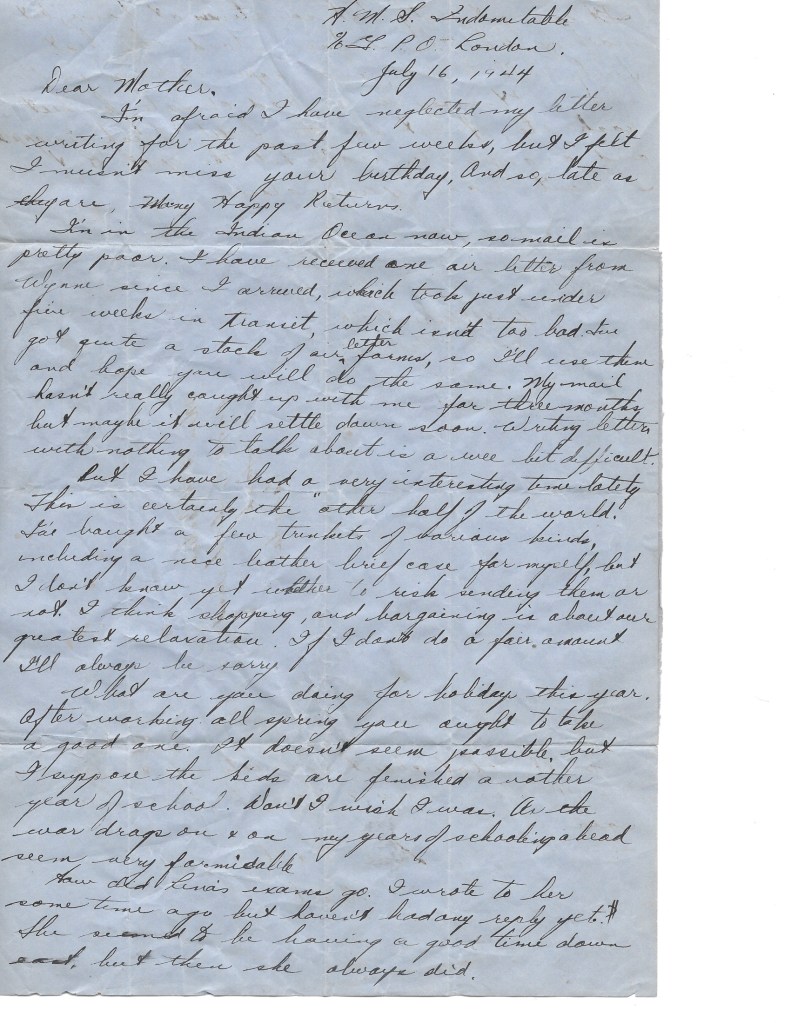 H. M. S. Indomitable
℅ G. P. O. London.
July 16, 1944
Dear Mother,
I'm afraid I have neglected my letter
writing for the past few weeks, but I felt
I musn't miss your birthday, And so, late as
they are, Many Happy Returns.
I'm in the Indian Ocean now, so mail is
pretty poor. I have received one air letter from
Wynne since I arrived, which took just under
five weeks in transit, which isn't too bad. I've
got quite a stock of air letter forms, so I'll use them
and hope you will do the same. My mail
hasn't really caught up with me for three months,
but maybe it will settle down soon. Writing letters
with nothing to talk about is a wee bit difficult.
But I have had a very interesting time lately
This is certainly the "other half of the world.
I've bought a few trinkets of various kinds,
including a nice leather brief case for myself, but
I don't know yet whether to risk sending them or
not. I think shopping, and bargaining is about our
greatest relaxation. If I don't do a fair amount
I'll always be sorry
What are you doing for holidays this year.
After working all spring you ought to take
a good one. It doesn't seem possible, but
I suppose the kids are finished another
year of school. Don't I wish I was. As the
war drags on & on my years of schooling ahead
seem very formidable
How did Lena's exams go. I wrote to her
some time ago but haven't had any reply yet.
She seemed to be having a good time down
east, but then she always did.